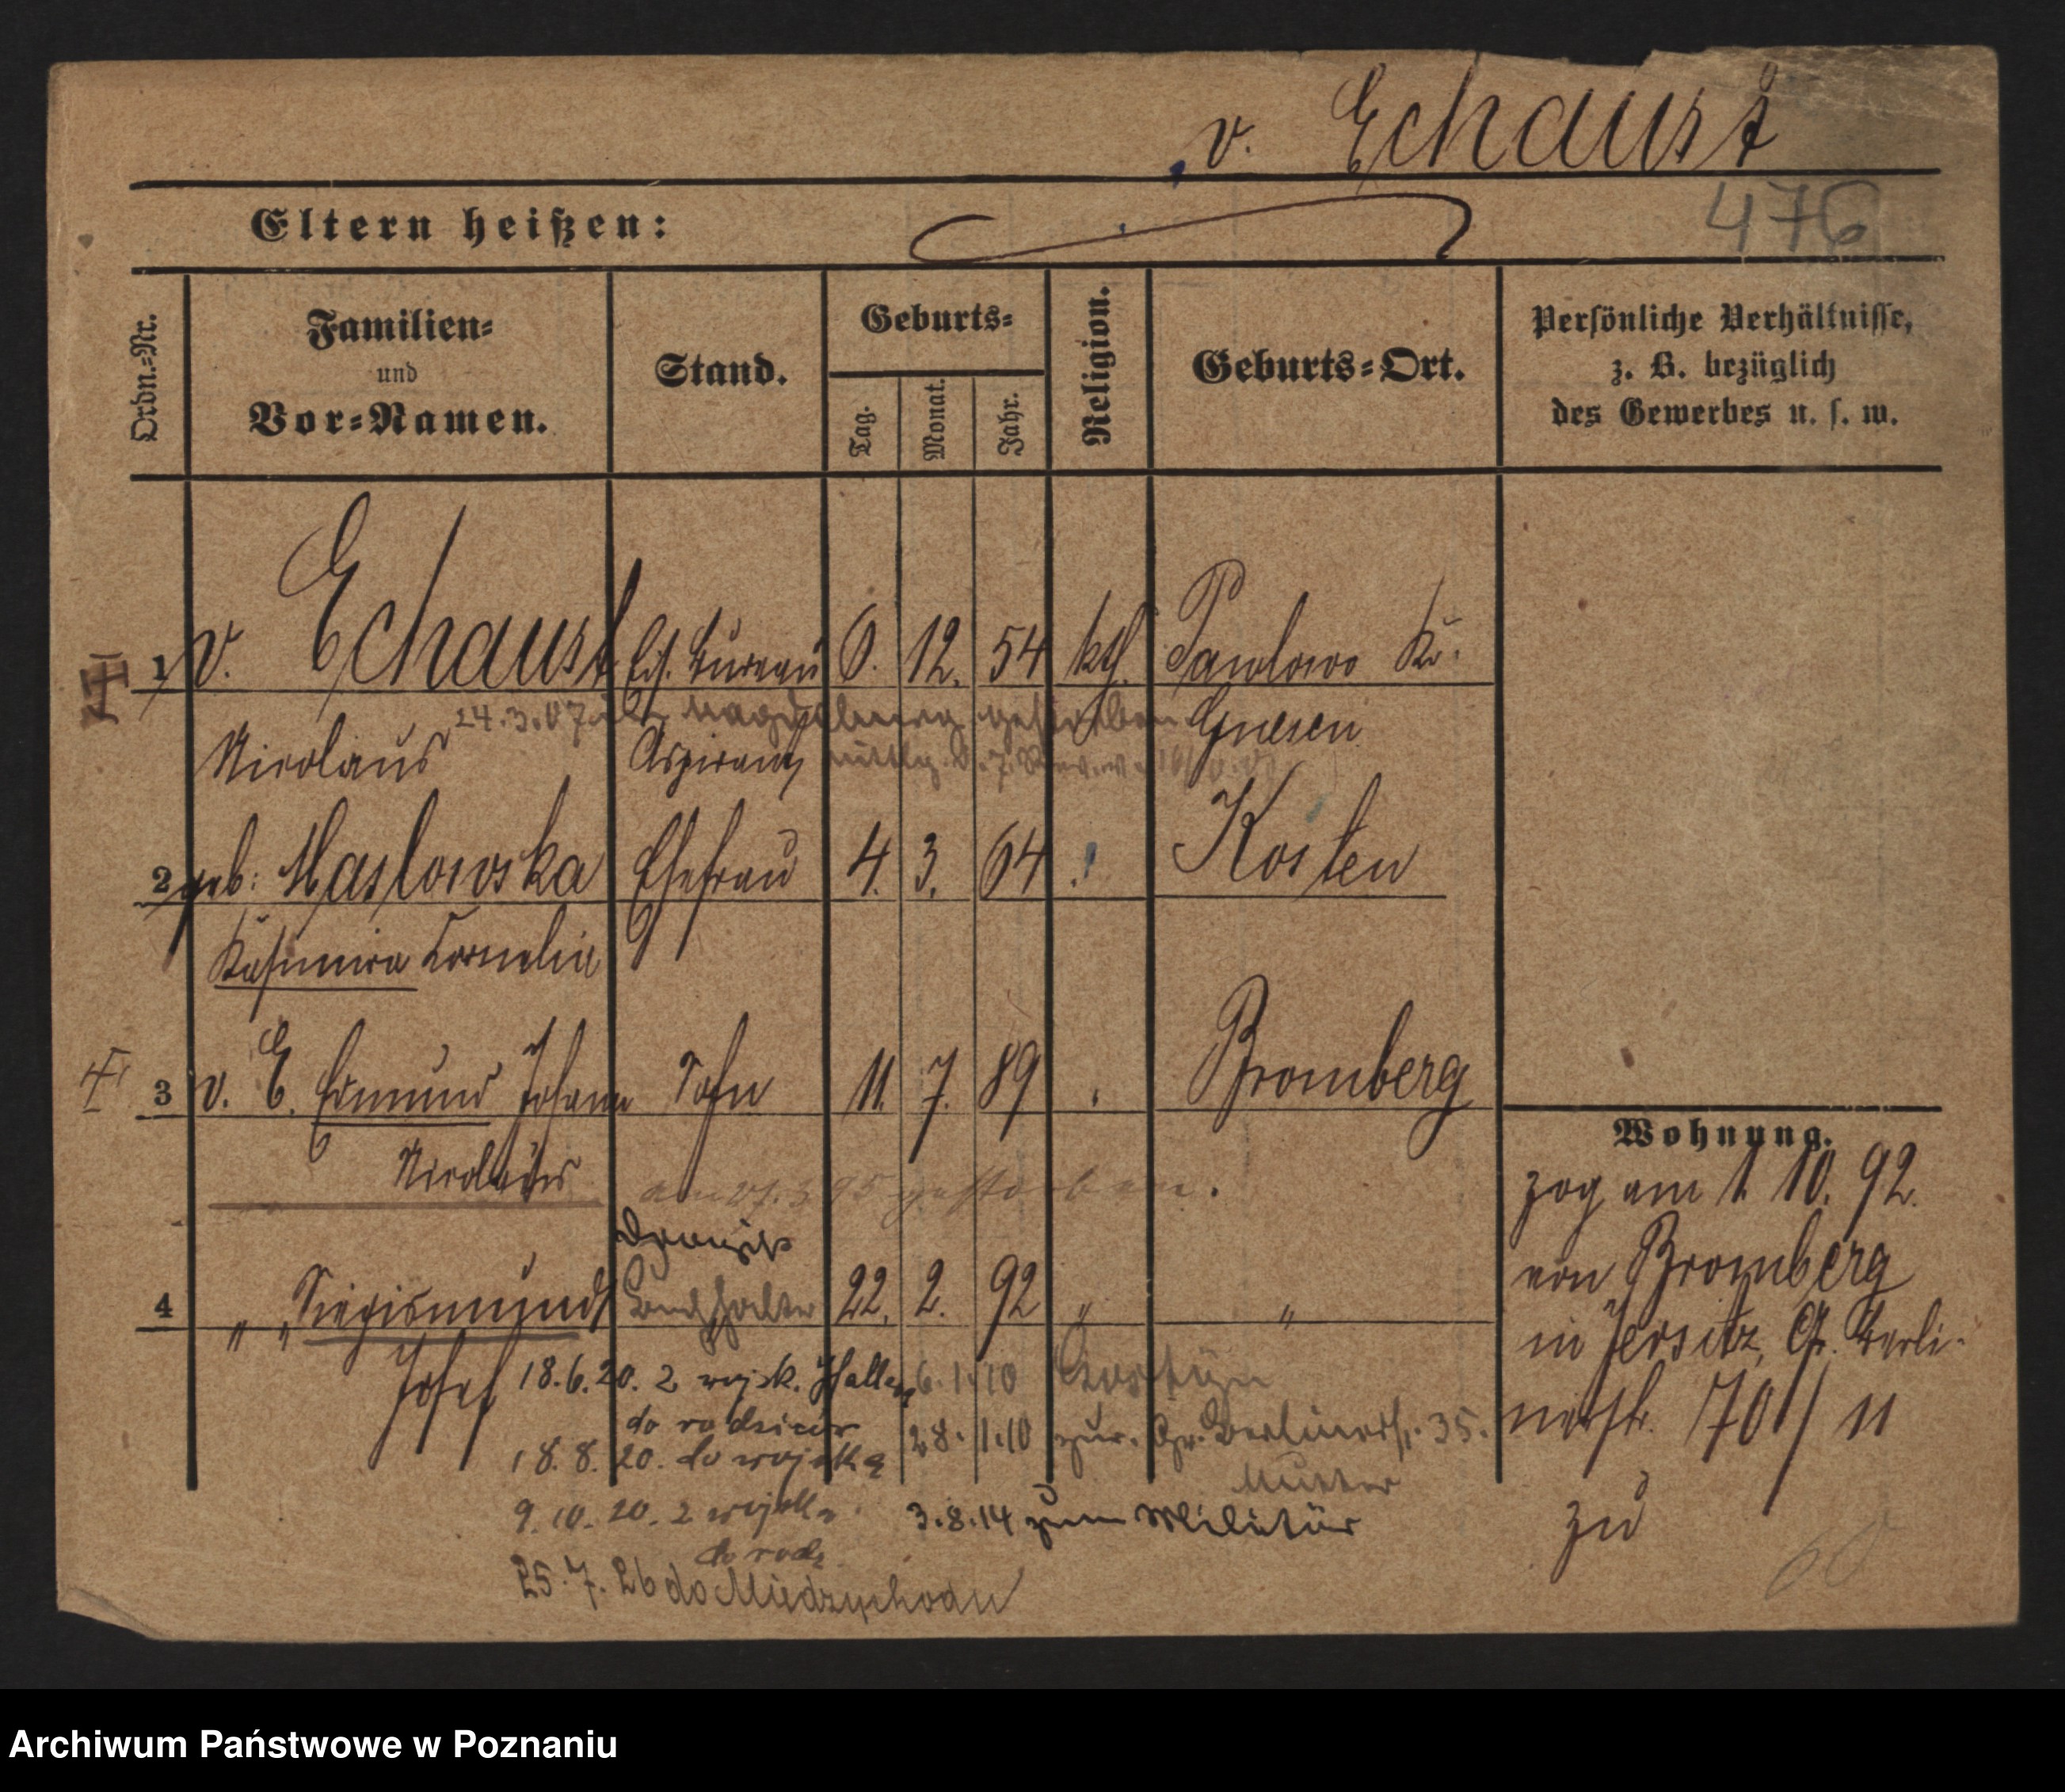 v. Echaust
476
Eltern heißen:
Ordn.-Nr.
Familien-
und
Vor-Namen.
Stand.
Geburts-
Tag.
Monat.
Jahr.
Religion.
Geburts-Ort.
Persönliche Verhältnisse,
z. B. bezüglich
des Gewerbes u. s. w.
1 v. Echaust Bureau 6. 12. 54 kth. Pawlowo Kr.
24.3.07 gestorben Gnesen
Nicolaus Aspirant
2 geb: Maslowska Ehefrau 4. 3. 64 Kosten
Kasimira Cornelia
3 v. E. Edmund Johann Sohn 11. 7. 89 Bromberg
Nicolaus
gestorben.
4 " " Siegismund Buchhalter 22. 2. 92 " "
Josef
18.6.20. z wojsk. Hallera
do rodziców
18.8.20. do wojska
9.10.20. z wojska
do rodz
25.7.26 do Międzychodu
6.1.10 Gostyn
28.1.10 zur. Gr. Berlinerstr. 35.
Mutter
3.8.14 zum Militär
Wohnung.
zog am 1. 10. 92.
von Bromberg
in Jersitz, Gr. Berli-
nerstr. 70 / 11
zu
60
Archiwum Państwowe w Poznaniu